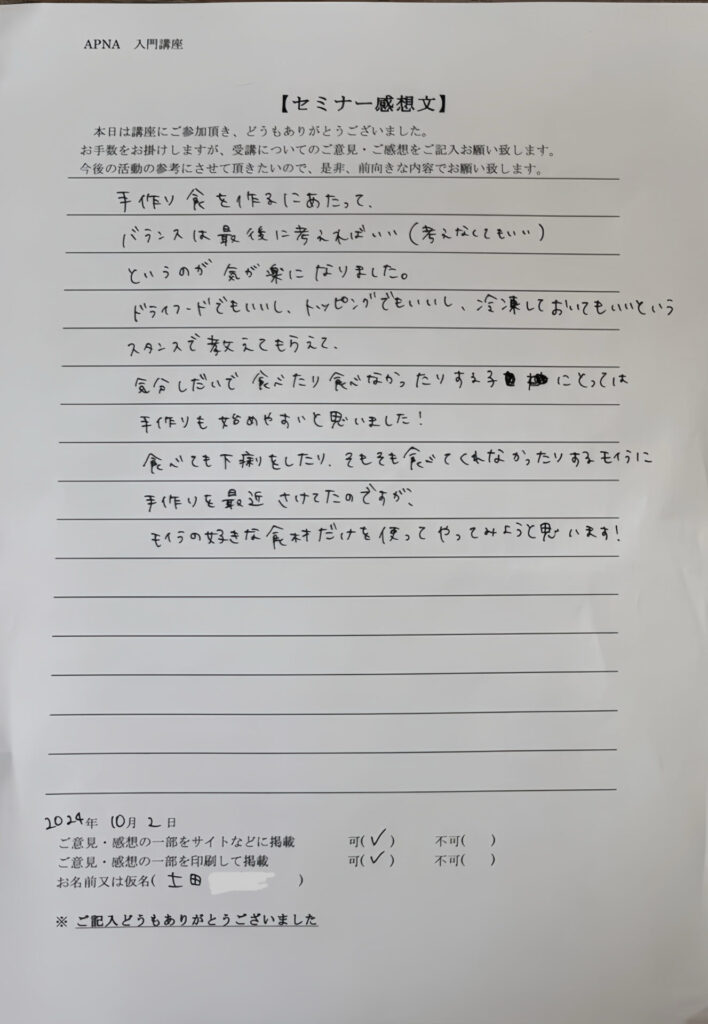 APNA　入門講座
【セミナー感想文】
本日は講座にご参加頂き、どうもありがとうございました。
お手数をお掛けしますが、受講についてのご意見・ご感想をご記入お願い致します。
今後の活動の参考にさせて頂きたいので、是非、前向きな内容でお願い致します。
手作り食を作るにあたって、
バランスは最後に考えればいい(考えなくてもいい)
というのが気が楽になりました。
ドライフードでもいいし、トッピングでもいいし、冷凍しておいてもいいという
スタンスで教えてもらえて、
気分しだいで食べたり食べなかったりする子にとっては
手作りも始めやすいと思いました!
食べても下痢をしたり、そもそも食べてくれなかったりするモイラに
手作りを最近さけてたのですが、
モイラの好きな食材だけを使ってやってみようと思います!
2024年 10月 2日
ご意見・感想の一部をサイトなどに掲載　可(✓)　不可(　)
ご意見・感想の一部を印刷して掲載　可(✓)　不可(　)
お名前又は仮名(土田　)
※ ご記入どうもありがとうございました